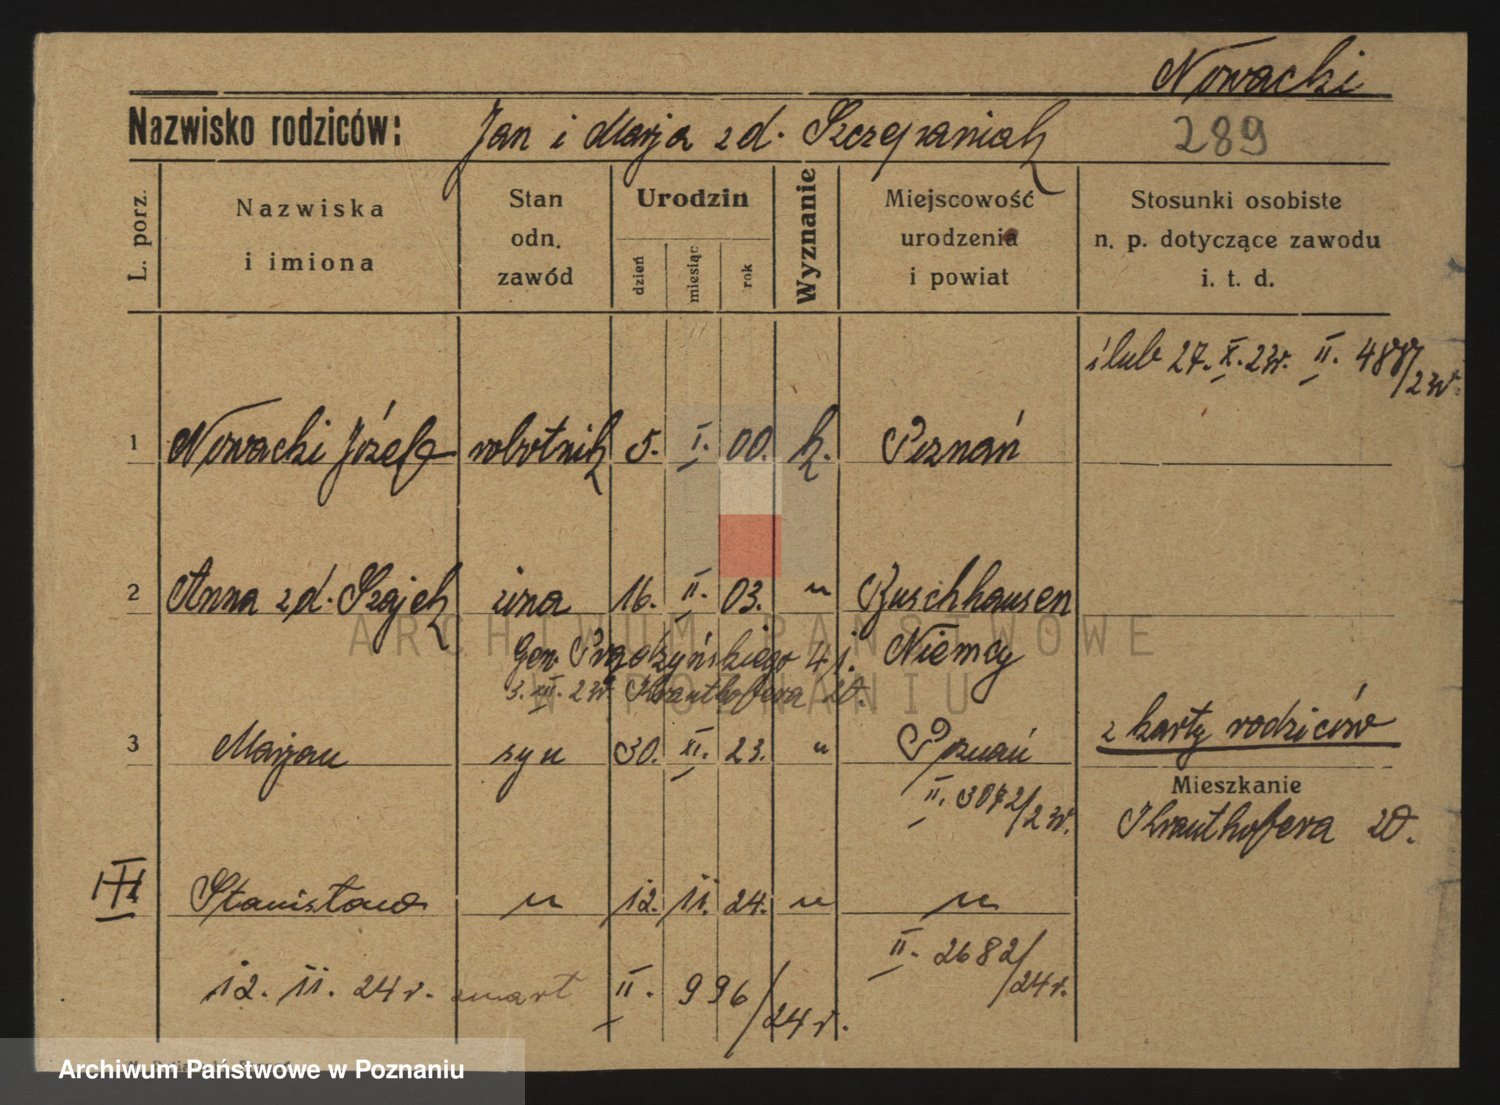 Nowacki
Nazwisko rodziców: Jan i Marja z d. Szczepaniak 289
L. porz.
Nazwiska
i imiona
Stan
odn.
zawód
Urodzin
dzień
miesiąc
rok
Wyznanie
Miejscowość
urodzenia
i powiat
Stosunki osobiste
n. p. dotyczące zawodu
i. t. d.
ślub 27. X. 23r. II. 487/23r.
1 Nowacki Józef robotnik 5. I. 00. k. Poznań
2 Anna z d. Szajek żona 16. II. 03. " Buschhausen
Gen. Prądzyńskiego 4 j. Niemcy
3. XII. 23r. Krauthofera 20.
3 Marjan syn 30. XI. 23. " Poznań z karty rodziców
II. 3072/23r.
Mieszkanie
Krauthofera 20.
Stanisław " 12. 11. 24. " "
II. 2682/24r.
12. 11. 24 r. zmarł II. 996/24 r.
ARCHIWUM PAŃSTWOWE
W POZNANIU
Archiwum Państwowe w Poznaniu